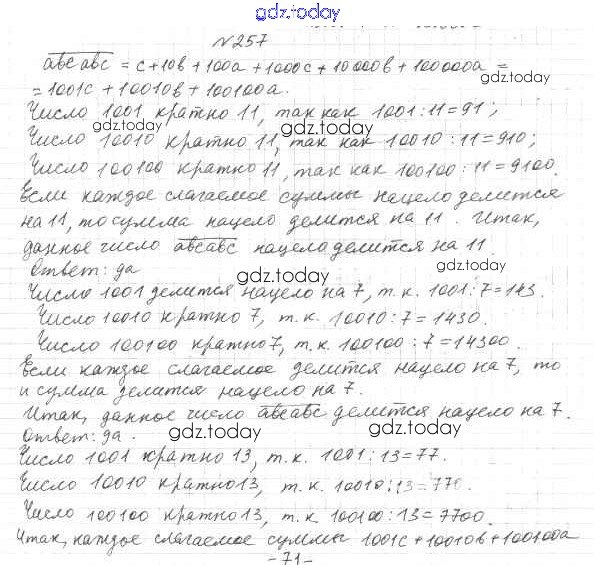 gdz.today
№257
abcabc = c + 10b + 100a + 1000c + 10000b + 100000a =
= 1001c + 10010b + 100100a.
gdz.today
Число 1001 кратно 11, так как 1001 : 11 = 91;
gdz.today gdz.today
Число 10010 кратно 11, так как 10010 : 11 = 910;
Число 100100 кратно 11, так как 100100 : 11 = 9100.
Если каждое слагаемое суммы нацело делится
на 11, то сумма нацело делится на 11. Итак,
данное число abcabc нацело делится на 11.
Ответ: да
gdz.today
Число 1001 делится нацело на 7, т.к. 1001 : 7 = 143.
Число 10010 кратно 7, т.к. 10010 : 7 = 1430.
Число 100100 кратно 7, т.к. 100100 : 7 = 14300.
Если каждое слагаемое делится нацело на 7, то
и сумма делится нацело на 7.
Итак, данное число abcabc делится нацело на 7.
Ответ: да.
gdz.today gdz.today
Число 1001 кратно 13, т.к. 1001 : 13 = 77.
Число 10010 кратно 13, т.к. 10010 : 13 = 770.
gdz.today
Число 100100 кратно 13, т.к. 100100 : 13 = 7700.
Итак, каждое слагаемое суммы 1001c + 10010b + 100100a
- 71 -